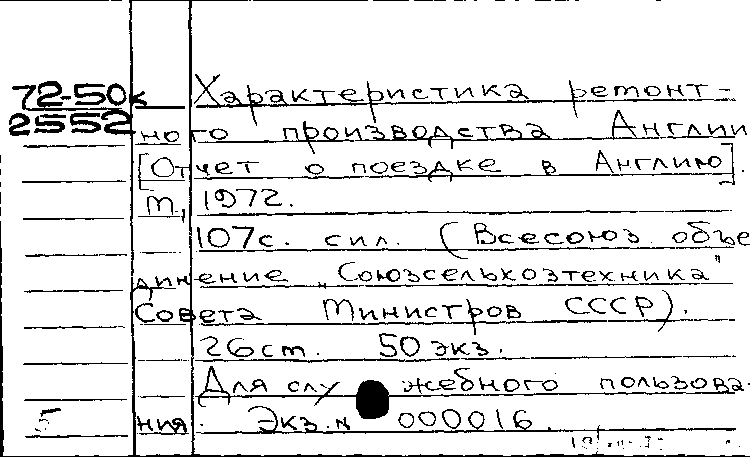 72-50к Характеристика ремонт-
2552 ного производства Англии
[Отчет о поездке в Англию].
М, 1972.
107с. с ил. (Всесоюз объе
динение „Союзсельхозтехника"
Совета Министров СССР).
26 ст. 50 экз.
Для служебного пользова-
5 ния. Экз. № 000016.